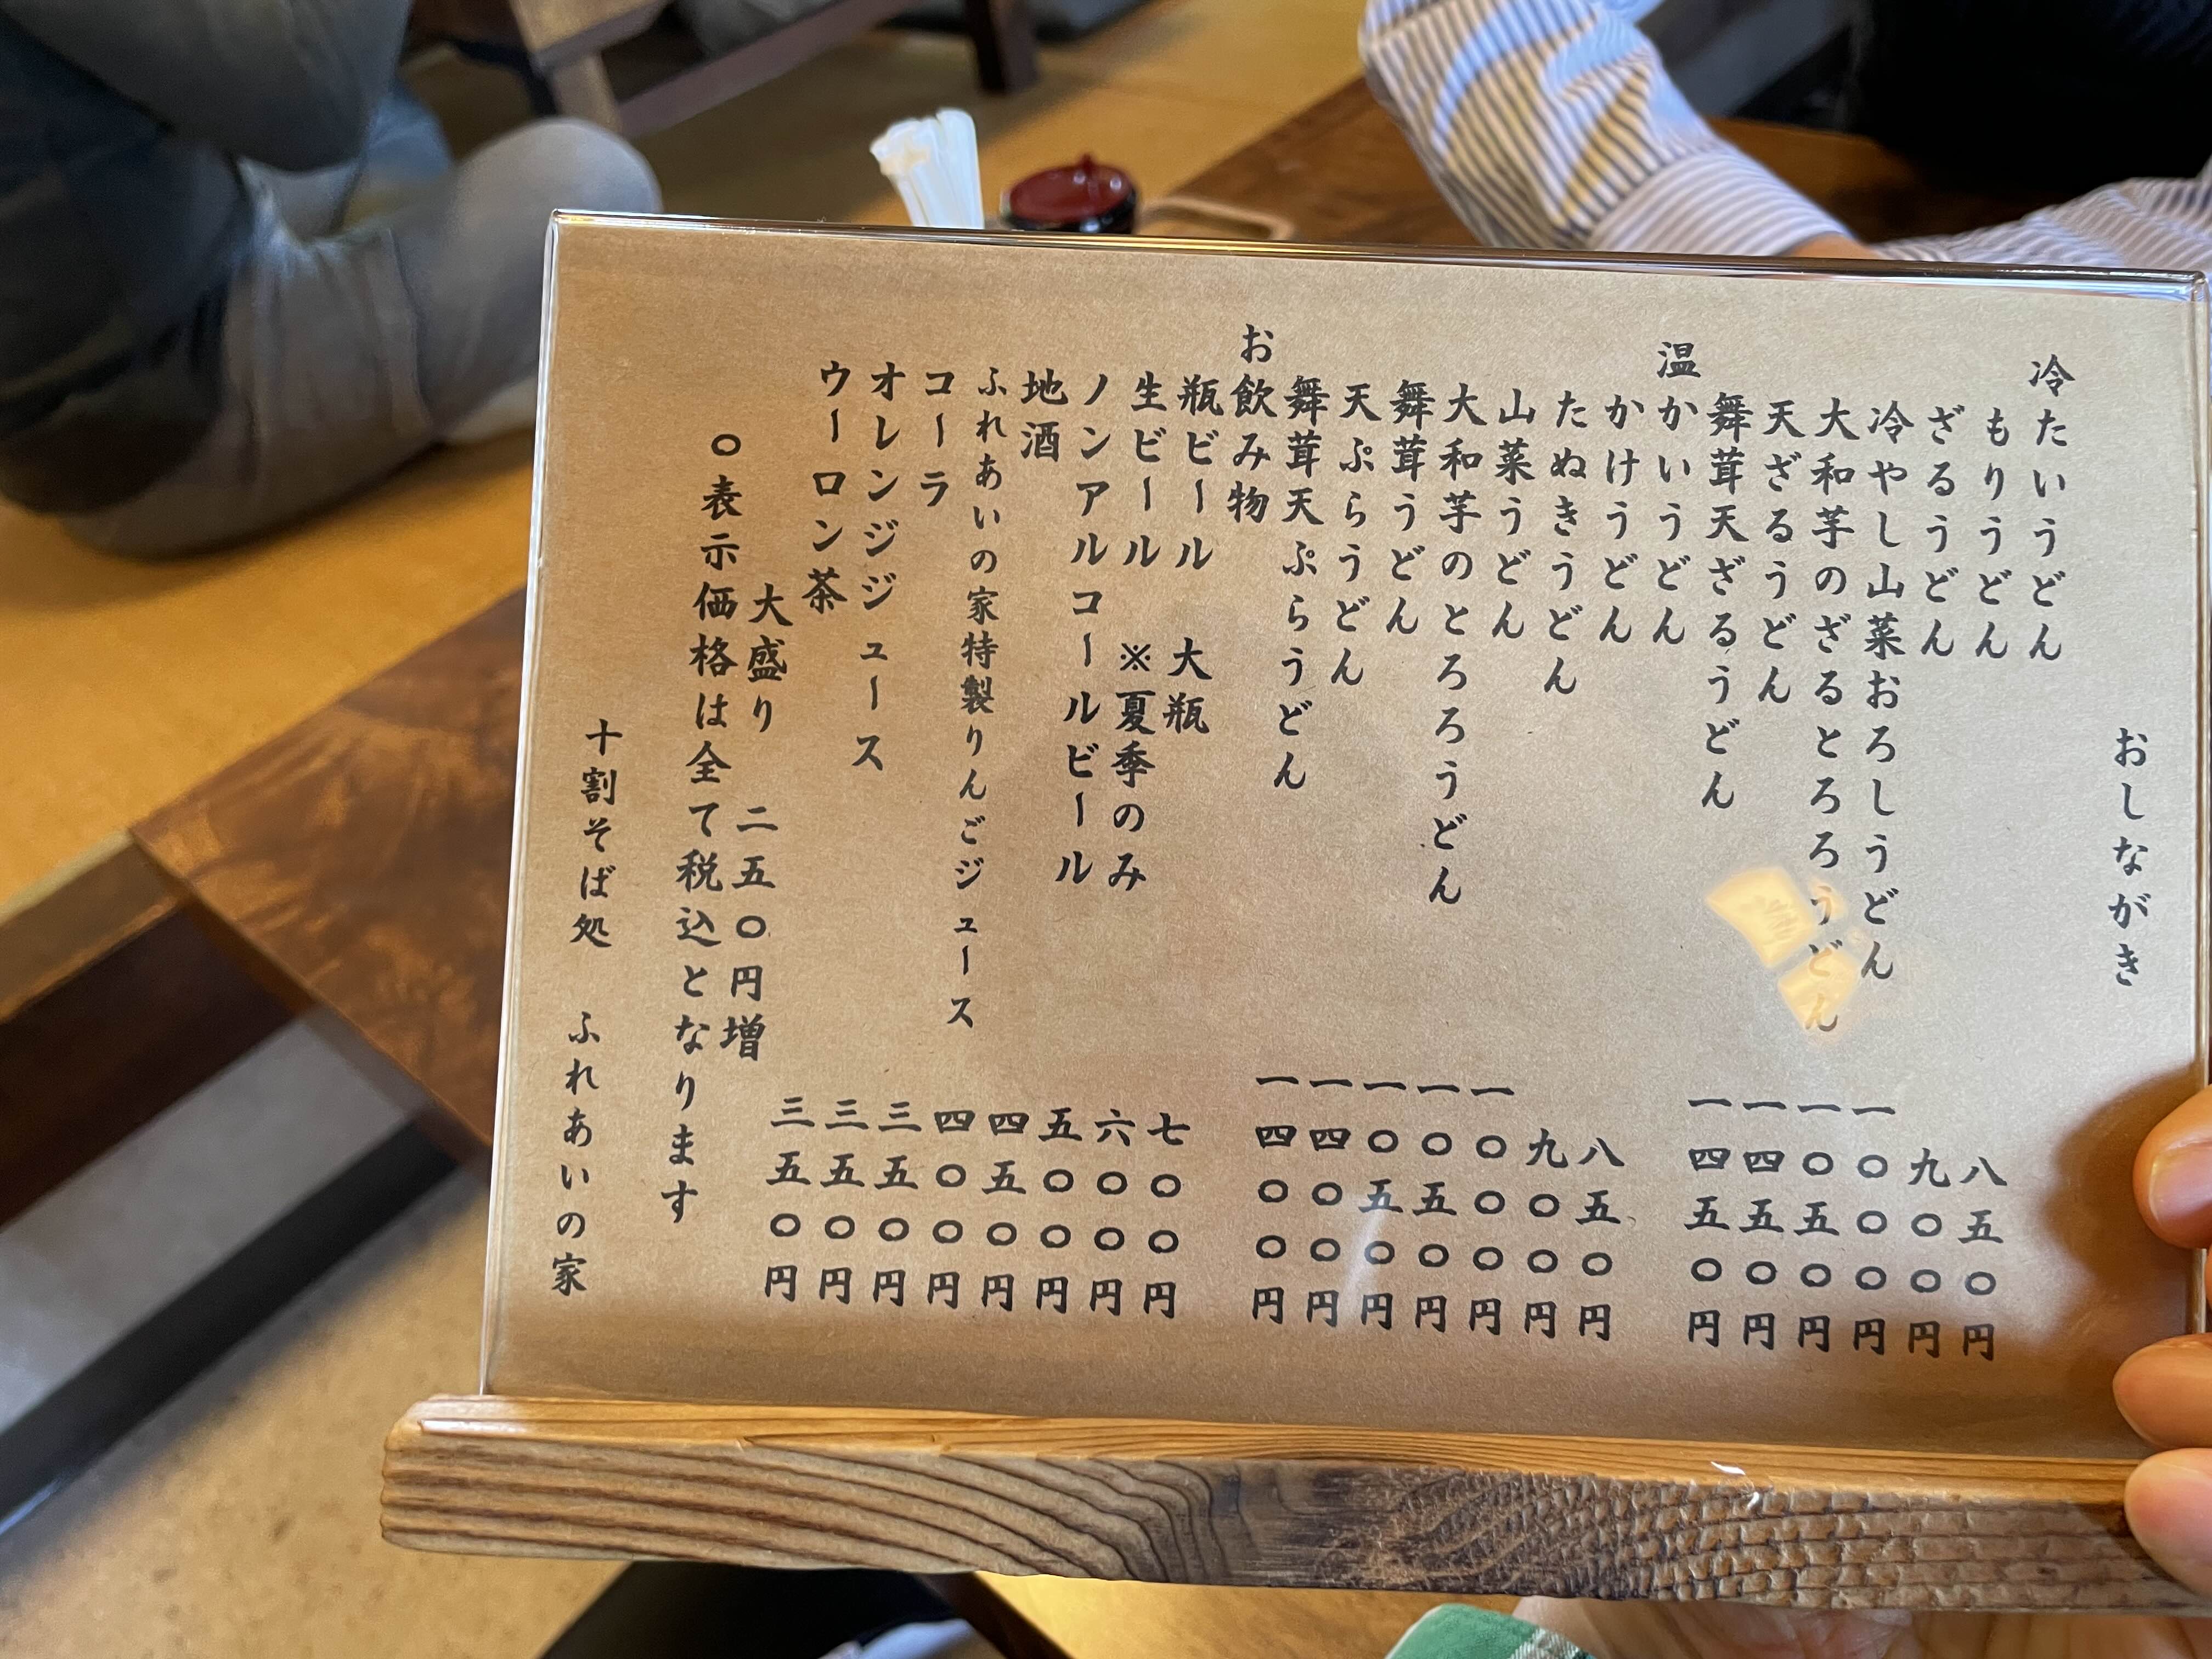 おしながき
冷たいうどん
もりうどん 八五〇円
ざるうどん 九〇〇円
冷やし山菜おろしうどん 一〇〇〇円
大和芋のざるとろろうどん 一〇五〇円
天ざるうどん 一四五〇円
舞茸天ざるうどん 一四五〇円
温かいうどん
かけうどん 八五〇円
たぬきうどん 九〇〇円
山菜うどん 一〇〇〇円
大和芋のとろろうどん 一〇五〇円
舞茸うどん 一〇五〇円
天ぷらうどん 一四〇〇円
舞茸天ぷらうどん 一四〇〇円
お飲み物
瓶ビール 大瓶 七〇〇円
生ビール ※夏季のみ 六〇〇円
ノンアルコールビール 五〇〇円
地酒 四五〇円
ふれあいの家特製りんごジュース 四〇〇円
コーラ 三五〇円
オレンジジュース 三五〇円
ウーロン茶 三五〇円
大盛り 二五〇円増
〇表示価格は全て税込となります
十割そば処 ふれあいの家